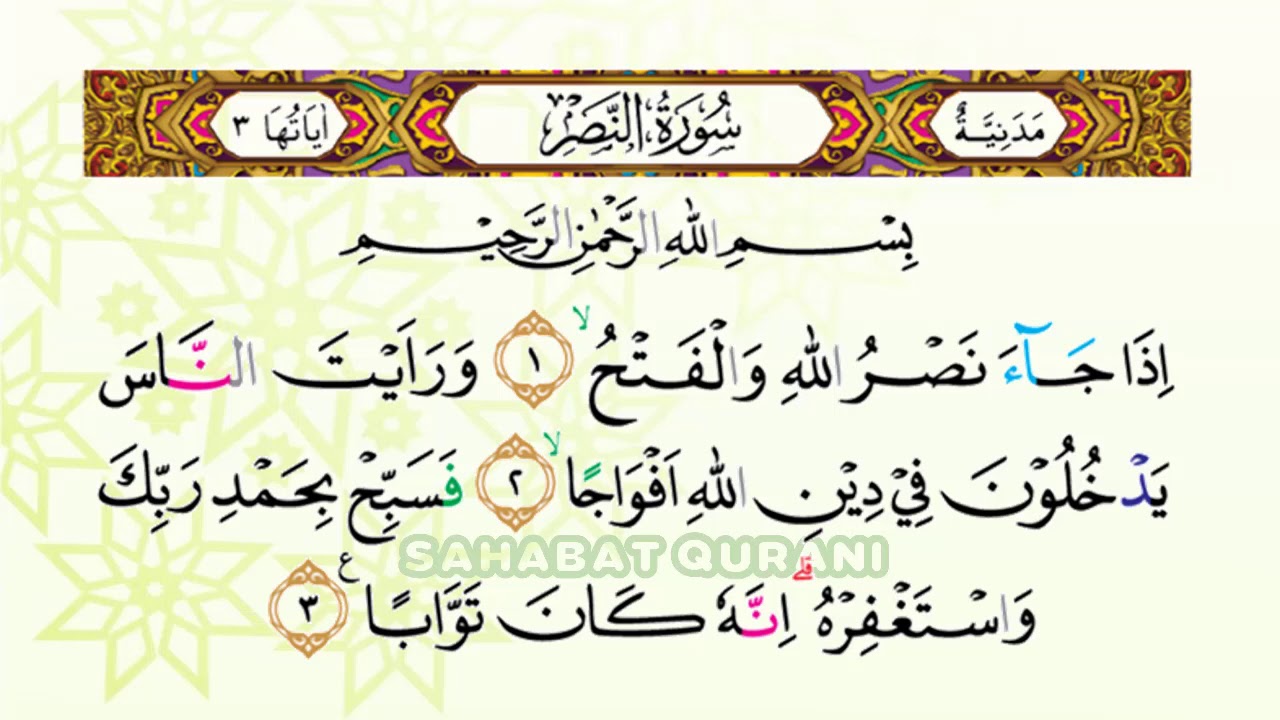 مَدَنِيَّةٌ سُوْرَةُ النَّصْرِ اٰيَاتُهَا ٣
بِسْمِ اللهِ الرَّحْمٰنِ الرَّحِيْمِ
اِذَا جَآءَ نَصْرُ اللهِ وَالْفَتْحُ ۙ ١ وَرَاَيْتَ النَّاسَ
يَدْخُلُوْنَ فِيْ دِيْنِ اللهِ اَفْوَاجًا ۙ ٢ فَسَبِّحْ بِحَمْدِ رَبِّكَ
SAHABAT QURANI
وَاسْتَغْفِرْهُ ۗ اِنَّهٗ كَانَ تَوَّابًا ع ٣